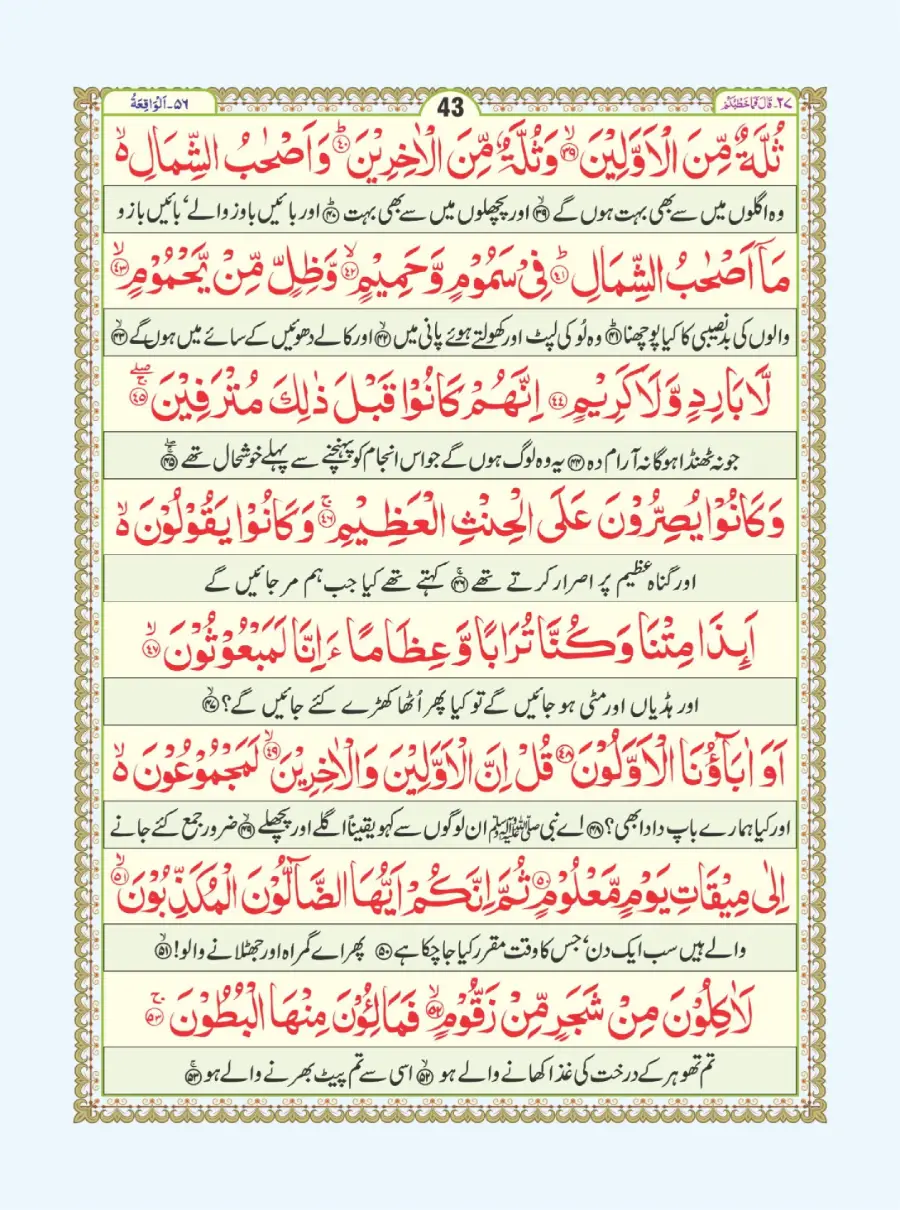 ٢٧-قَالَ فَمَا خَطْبُكُمْ
43
٥٦-اَلْوَاقِعَةُ
ثُلَّةٌ مِّنَ الْاَوَّلِيْنَ ۙ﴿٣٩﴾ وَثُلَّةٌ مِّنَ الْاٰخِرِيْنَ ؕ﴿٤٠﴾ وَاَصْحٰبُ الشِّمَالِ ۙ
وہ اگلوں میں سے بھی بہت ہوں گے ﴿۳۹﴾ اور پچھلوں میں سے بھی بہت ﴿۴۰﴾ اور بائیں باوز والے‘ بائیں بازو
مَاۤ اَصْحٰبُ الشِّمَالِ ؕ﴿٤١﴾ فِيْ سَمُوْمٍ وَّحَمِيْمٍ ۙ﴿٤٢﴾ وَّظِلٍّ مِّنْ يَّحْمُوْمٍ ۙ﴿٤٣﴾
والوں کی بدنصیبی کا کیا پوچھنا ﴿۴۱﴾ وہ لُو کی لپٹ اور کھولتے ہوئے پانی میں ﴿۴۲﴾ اور کالے دھوئیں کے سائے میں ہوں گے ﴿۴۳﴾
لَّا بَارِدٍ وَّلَا كَرِيْمٍ ﴿٤٤﴾ اِنَّهُمْ كَانُوْا قَبْلَ ذٰلِكَ مُتْرَفِيْنَ ۚۖ﴿٤٥﴾
جو نہ ٹھنڈا ہوگا نہ آرام دہ ﴿۴۴﴾ یہ وہ لوگ ہوں گے جو اس انجام کو پہنچنے سے پہلے خوشحال تھے ﴿۴۵﴾
وَكَانُوْا يُصِرُّوْنَ عَلَى الْحِنْثِ الْعَظِيْمِ ۚ﴿٤٦﴾ وَكَانُوْا يَقُوْلُوْنَ ۙ
اور گناہ عظیم پر اصرار کرتے تھے ﴿۴۶﴾ کہتے تھے کیا جب ہم مر جائیں گے
اَىِٕذَا مِتْنَا وَكُنَّا تُرَابًا وَّعِظَامًا ءَاِنَّا لَمَبْعُوْثُوْنَ ۙ﴿٤٧﴾
اور ہڈیاں اور مٹی ہو جائیں گے تو کیا پھر اُٹھا کھڑے کئے جائیں گے؟ ﴿۴۷﴾
اَوَ اٰبَآؤُنَا الْاَوَّلُوْنَ ﴿٤٨﴾ قُلْ اِنَّ الْاَوَّلِيْنَ وَالْاٰخِرِيْنَ ۙ﴿٤٩﴾ لَمَجْمُوْعُوْنَ ۙ
اور کیا ہمارے باپ دادا بھی؟ ﴿۴۸﴾ اے نبی ﷺ ان لوگوں سے کہو یقیناً اگلے اور پچھلے ﴿۴۹﴾ ضرور جمع کئے جانے
اِلٰى مِيْقَاتِ يَوْمٍ مَّعْلُوْمٍ ﴿٥٠﴾ ثُمَّ اِنَّكُمْ اَيُّهَا الضَّآلُّوْنَ الْمُكَذِّبُوْنَ ۙ﴿٥١﴾
والے ہیں سب ایک دن‘ جس کا وقت مقرر کیا جا چکا ہے ﴿۵۰﴾ پھر اے گمراہ اور جھٹلانے والو! ﴿۵۱﴾
لَاٰكِلُوْنَ مِنْ شَجَرٍ مِّنْ زَقُّوْمٍ ۙ﴿٥٢﴾ فَمَالِـُٔوْنَ مِنْهَا الْبُطُوْنَ ۚ﴿٥٣﴾
تم تھوہر کے درخت کی غذا کھانے والے ہو ﴿۵۲﴾ اسی سے تم پیٹ بھرنے والے ہو ﴿۵۳﴾